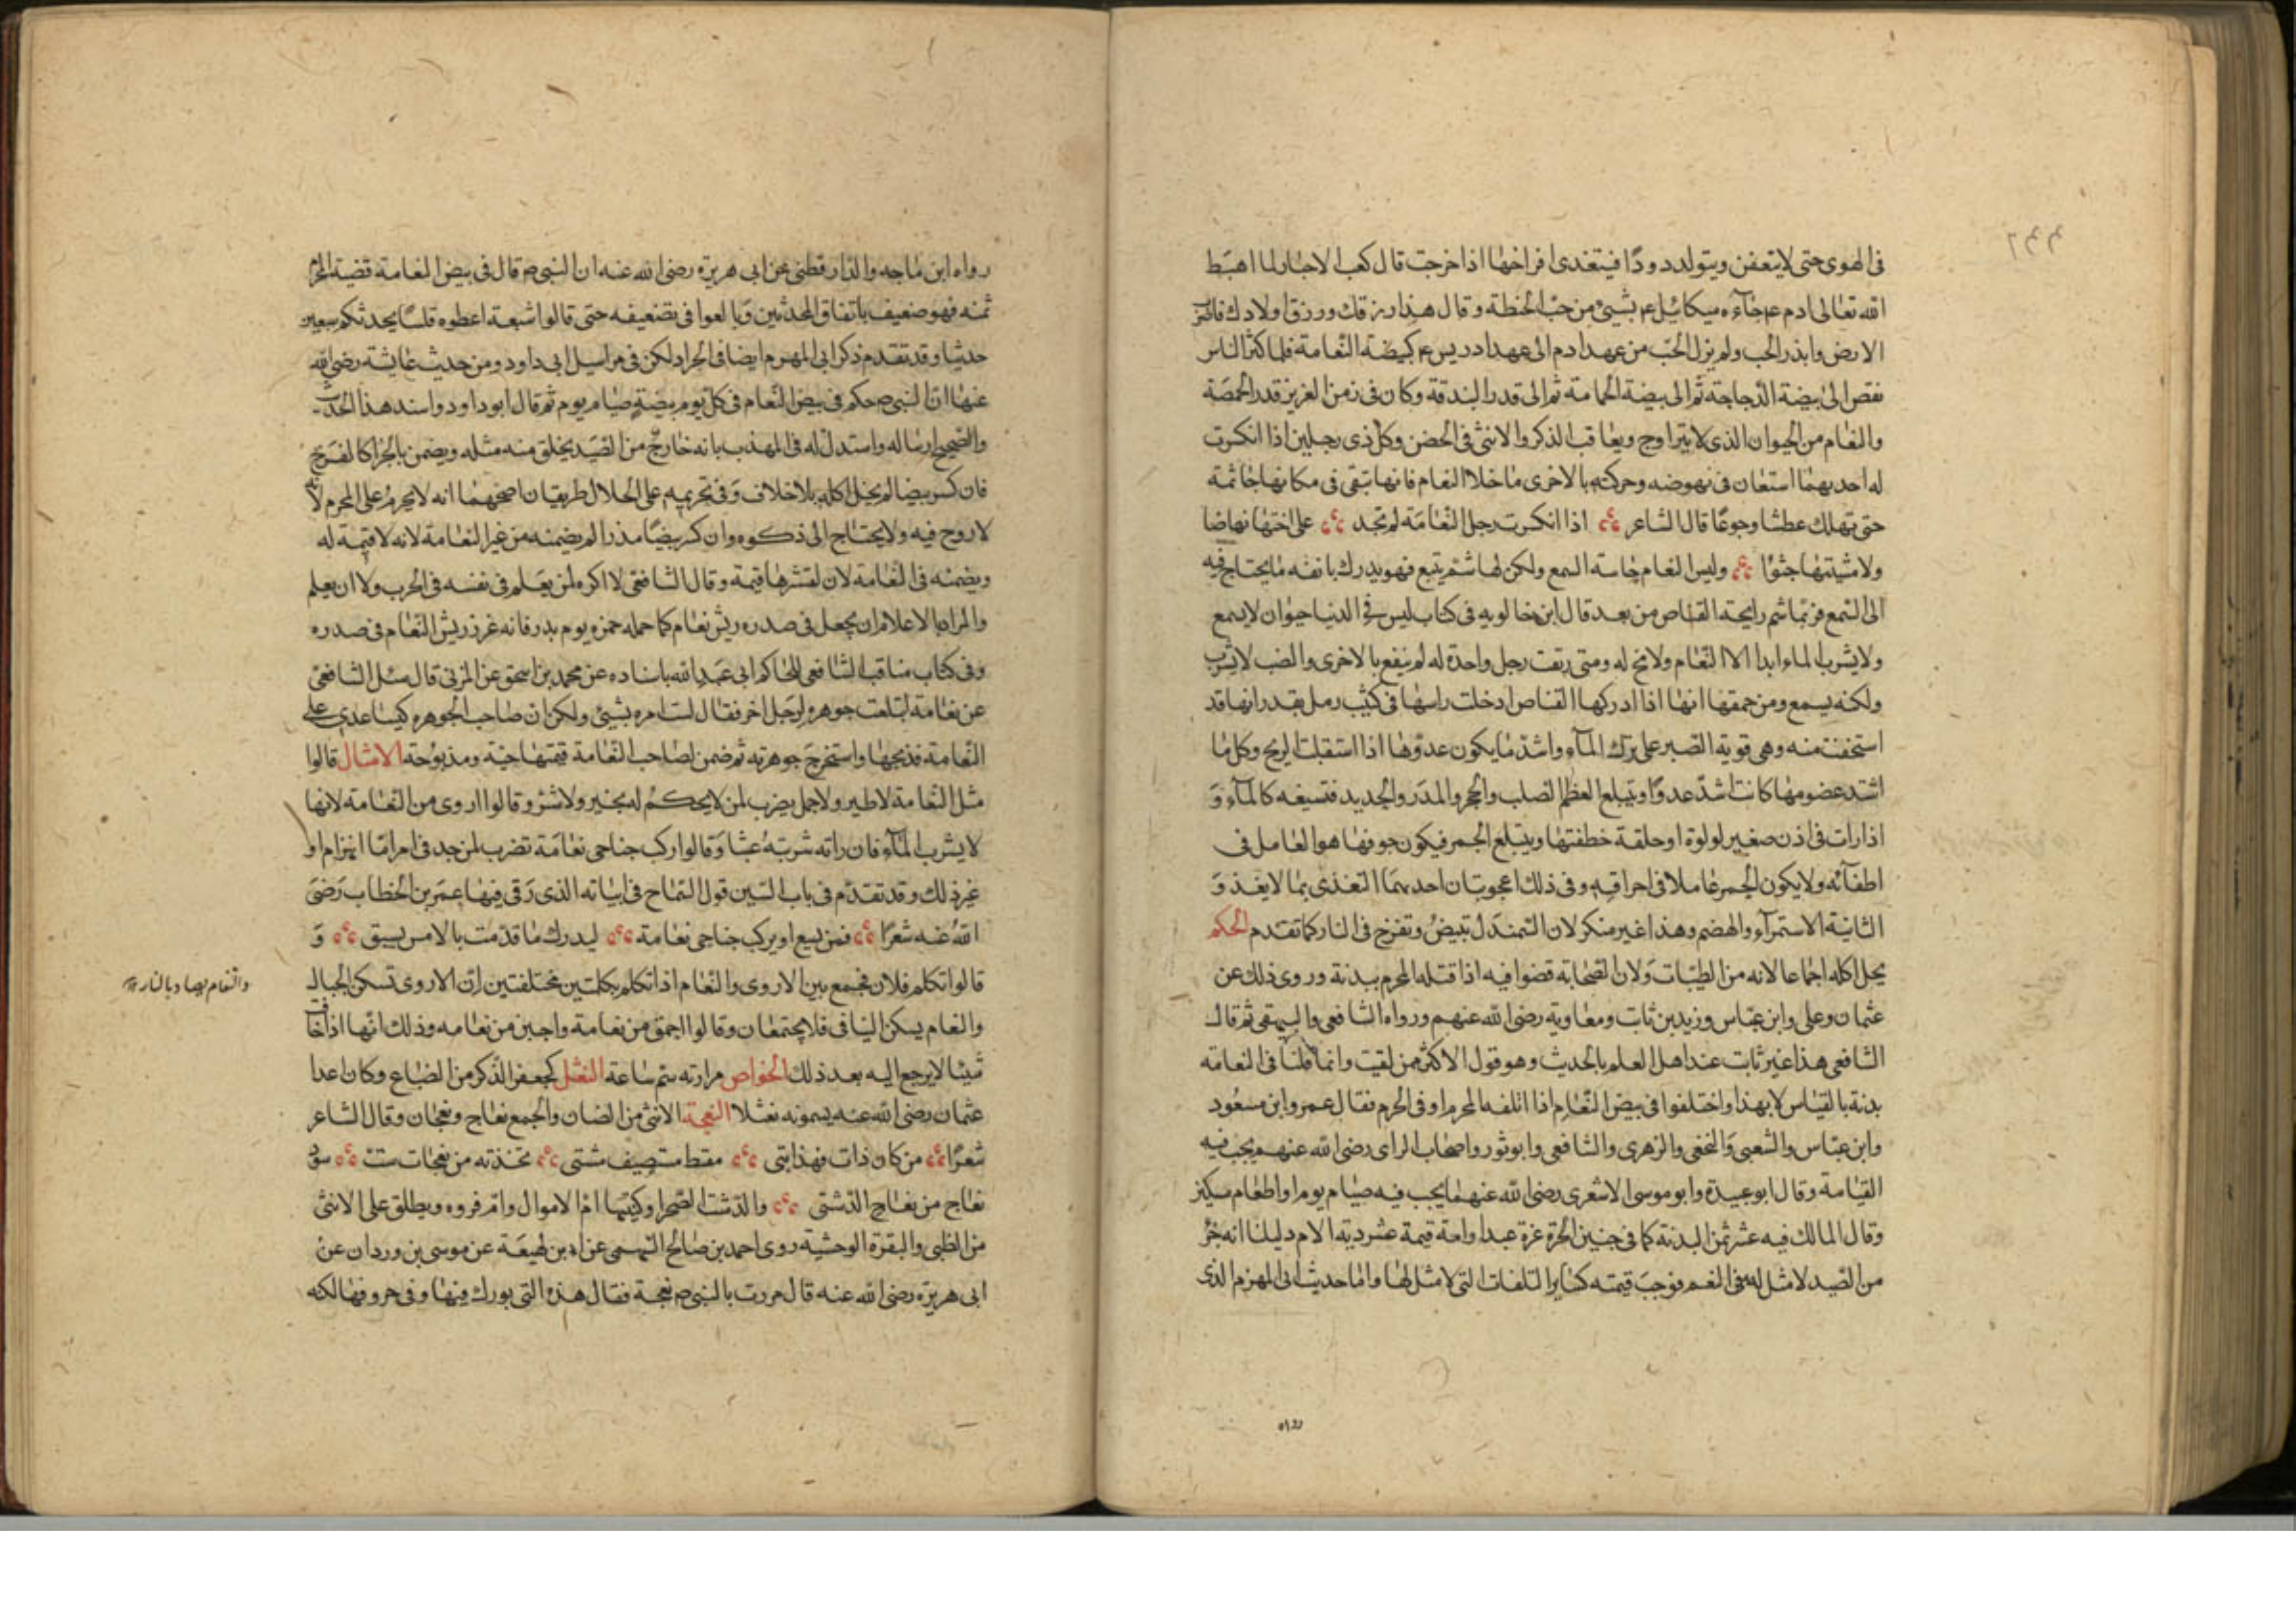 في الهوى حتى لا يتعفن ويتولد دودًا فيتغذى افراخها اذا خرجت قال كعب الاحبار لما اهبط
الله تعالى ادم ع جاءه ميكائيل ع بشيئ من حب الحنطة وقال هذا رزقك ورزق اولادك فاحرث
الارض وابذر الحب ولم يزل الحب من عهد ادم الى عهد ادريس ع كبيضة النعامة فلما كثر الناس
نقص الى بيضة الدجاجة ثم الى بيضة الحمامة ثم الى قدر البندقة وكان في زمن العزيز قدر الحمصة
والنعام من الحيوان الذى لا يتزاوج ويعاقب الذكر والانثى في الحضن وكل ذى رجلين اذا انكسرت
له احديهما استعان في نهوضه وحركته بالاخرى ما خلا النعام فانها تبقى في مكانها جاثمة
حتى تهلك عطشا وجوعًا قال الشاعر اذا انكسرت رجل النعامة لم تجد على اختها نهاضا
ولا مشيتها جثوًا وليس للنعام حاسة السمع ولكن لها شم يتبع فهو يدرك بانفه ما يحتاج فيه
الى السمع فربما شم رايحة القناص من بعد قال ابن خالويه في كتاب ليس في الدنيا حيوان لا يسمع
ولا يشرب الماء ابدا الا النعام ولا مخ له ومتى رتقت رجل واحدة له لم ينفع بالاخرى والضب لا يشرب
ولكنه يسمع ومن حمقها انها اذا ادركها القناص ادخلت راسها في كثيب رمل بقدر انها قد
استخفت منه وهي قوية الصبر على ترك المآء واشد ما يكون عدوها اذا استقبلت الريح وكل ما
اشتد عضومها كانت اشد عدوًا وتبتلع العظم الصلب والحجر والمدر والحديد فتسيغه كالمآء و
اذا رات في اذن صغير لولوة او حلقة خطفتها ويبتلع الجمر فيكون جوفها هو العامل في
اطفآئه ولا يكون الجمر عاملا في احراقه وفي ذلك اعجوبتان احديهما التغذى بما لا يغذ و
الثانية الاستمرآء والهضم وهذا غير منكر لان السمندل تبيض وتفرخ في النار كما تقدم الحكم
يحل اكله اجماعا لانه من الطيبات ولان الصحابة قضوا فيه اذا قتله المحرم ببدنة وروى ذلك عن
عثمان وعلي وابن عباس وزيد بن ثابت ومعاوية رضى الله عنهم ورواه الشافعي والبيهقي ثم قال
الشافعي هذا غير ثابت عند اهل العلم بالحديث وهو قول الاكثر ممن لقيت وانما قلنا في النعامة
بدنة بالقياس لا بهذا واختلفوا في بيض النعام اذا اتلفه المحرم او في الحرم فقال عمر وابن مسعود
وابن عباس والشعبي والنخعي والزهرى والشافعي وابو ثور واصحاب الراى رضى الله عنهم يجب فيه
القيامة وقال ابو عبيدة وابو موسى الاشعرى رضى الله عنهما يجب فيه صيام يوم او اطعام مسكين
وقال المالك فيه عشر ثمن البدنة كما في جنين الحرة غرة عبد او امة قيمة عشر دية الام دليلنا انه جزء
من الصيد لا مثل له في النعم فوجب قيمته كساير المتلفات التي لا مثل لها واما حديث ابى المهزم الذى
رواه
رواه ابن ماجه والدارقطني عن ابي هريرة رضى الله عنه ان النبي ص قال في بيض النعامة قضية المحرم
ثمنه فهو ضعيف باتفاق المحدثين وبالغوا في تضعيفه حتى قالوا شبعة اعطوه فلسًا يحدثكم سبعين
حديثا وقد تقدم ذكر ابى المهزم ايضا في الجراد لكن في مراسيل ابى داود ومن حديث عايشة رضى الله
عنها ان النبى ص حكم في بيض النعام في كل يوم بيضة صيام يوم ثم قال ابو داود واسند هذا الحديث
والصحيح ارساله واستدل له في المهذب بانه خارج من الصيد يخلق منه مثله ويضمن بالجزا كالفرخ
فان كسر بيضا لم يحل اكله بلا خلاف وفي تحريمه على الحلال طريقان اصحهما انه لا يحرم على المحرم لانه
لا روح فيه ولا يحتاج الى ذكوه وان كسر بيضًا مذرا لم يضمنه من غير النعامة لانه لا قيمة له
ويضمنه في النعامة لان لقشرها قيمة وقال الشافعي لا اكره لمن يعلم في نفسه في الحرب ولا ان يعلم
والمراد بالاعلام ان يجعل في صدره ريش نعام كما حمله حمزه يوم بدر فانه غرز ريش النعام في صدره
وفي كتاب مناقب الشافعي للحاكم ابى عبد الله باسناده عن محمد بن اسحق عن المزنى قال سئل الشافعي
عن نعامة ابتلعت جوهرة لرجل اخر فقال لست امره بشيئ ولكن ان صاحب الجوهره كيسا عدى على
النعامة فذبحها واستخرج جوهرته ثم ضمن لصاحب النعامة قيمتها حية ومذبوحة الامثال قالوا
مثل النعامة لا طير ولا جمل يضرب لمن لا يحكم له بخير ولا شر وقالوا اروى من النعامة لانها
لا يشرب المآء فان راته شربته عبثا وقالوا ركب جناحى نعامة تضرب لمن جد في امر اما انهزام او
غير ذلك وقد تقدم في باب السين قول الشماخ في ابياته الذى رقى فيها عمر بن الخطاب رضى
الله عنه شعرًا فمن يسع او يركب جناحى نعامة ليدرك ما قدمت بالامس يسبق و
قالوا تكلم فلان فجمع بين الاروى والنعام اذا تكلم بكلمتين مختلفتين لان الاروى تسكن الجبال
والنعام يسكن الفيافى فلا يجتمعان وقالوا احمق من نعامة واجبن من نعامه وذلك انها اذا خافت
شيئا لا يرجع اليه بعد ذلك الخواص مرارته سم ساعة النعثل كجعفر الذكر من الضباع وكان اعدا
عثمان رضى الله عنه يسمونه نعثلا النعجة الانثى من الضان والجمع نعاج ونعجات وقال الشاعر
شعرًا من كان ذات فهذا بتى مقيظ مصيف مشتى تخذته من نعجات ست سود
نعاج من نعاج الدشتى والدشت الصحرا وكنيتها ام الاموال وام فروه ويطلق على الانثى
من الظبى والبقرة الوحشية روى احمد بن صالح السهمى عن ابن لهيعة عن موسى بن وردان عن
ابى هريرة رضى الله عنه قال مررت بالنبى ص نعجة فقال هذه التى بورك فيها وفى خروفها لكنه
والنعام يصاد بالنار